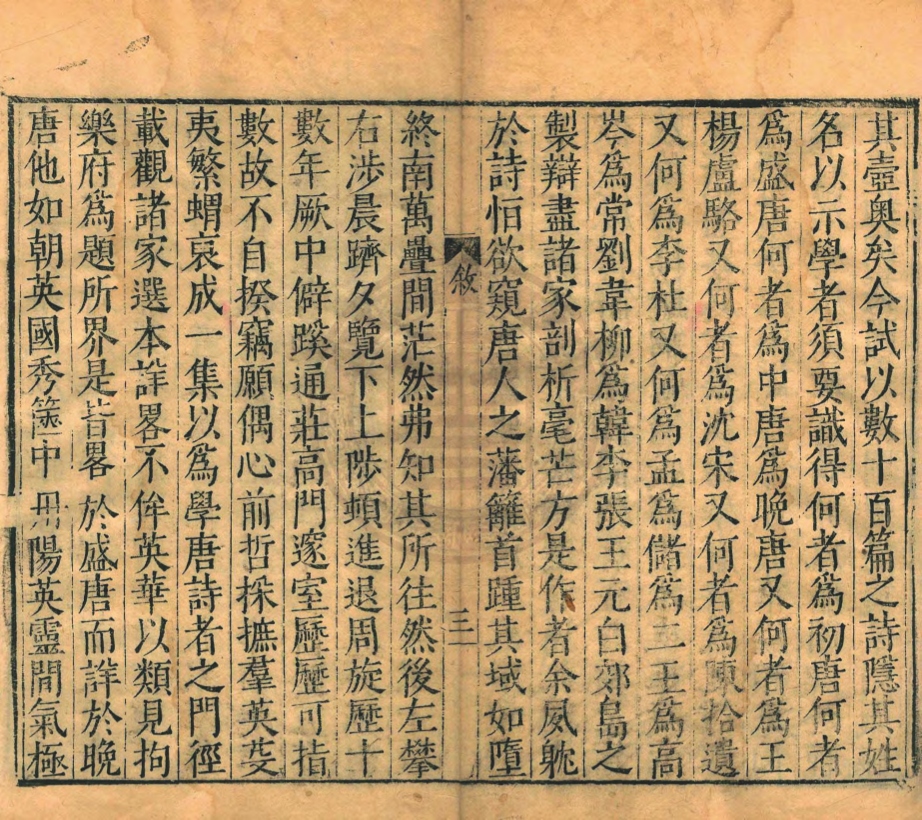 其壼奧矣今試以數十百篇之詩隱其姓
名以示學者須要識得何者爲初唐何者
爲盛唐何者爲中唐爲晚唐又何者爲王
楊盧駱又何者爲沈宋又何者爲陳拾遺
又何爲李杜又何爲孟爲儲爲二王爲高
岑爲常劉韋柳爲韓李張王元白郊島之
製辯盡諸家剖析毫芒方是作者余夙躭
於詩恒欲窺唐人之藩籬首踵其域如墮
敘
三
終南萬疊間茫然弗知其所往然後左攀
右涉晨躋夕覽下上陟頓進退周旋歷十
數年厥中僻蹊通莊高門邃室歷歷可指
數故不自揆竊願偶心前哲採摭羣英芟
夷繁蝟裒成一集以爲學唐詩者之門徑
載觀諸家選本詳畧不侔英華以類見拘
樂府爲題所界是皆畧於盛唐而詳於晚
唐他如朝英國秀篋中丹陽英靈間氣極